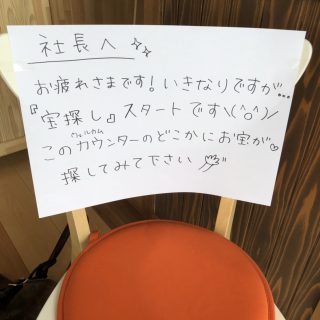 社長へ
お疲れさまです！いきなりですが…
『宝探し』スタートです\(^o^)/
ウェルカム
このカウンターのどこかにお宝が♡
探してみて下さい